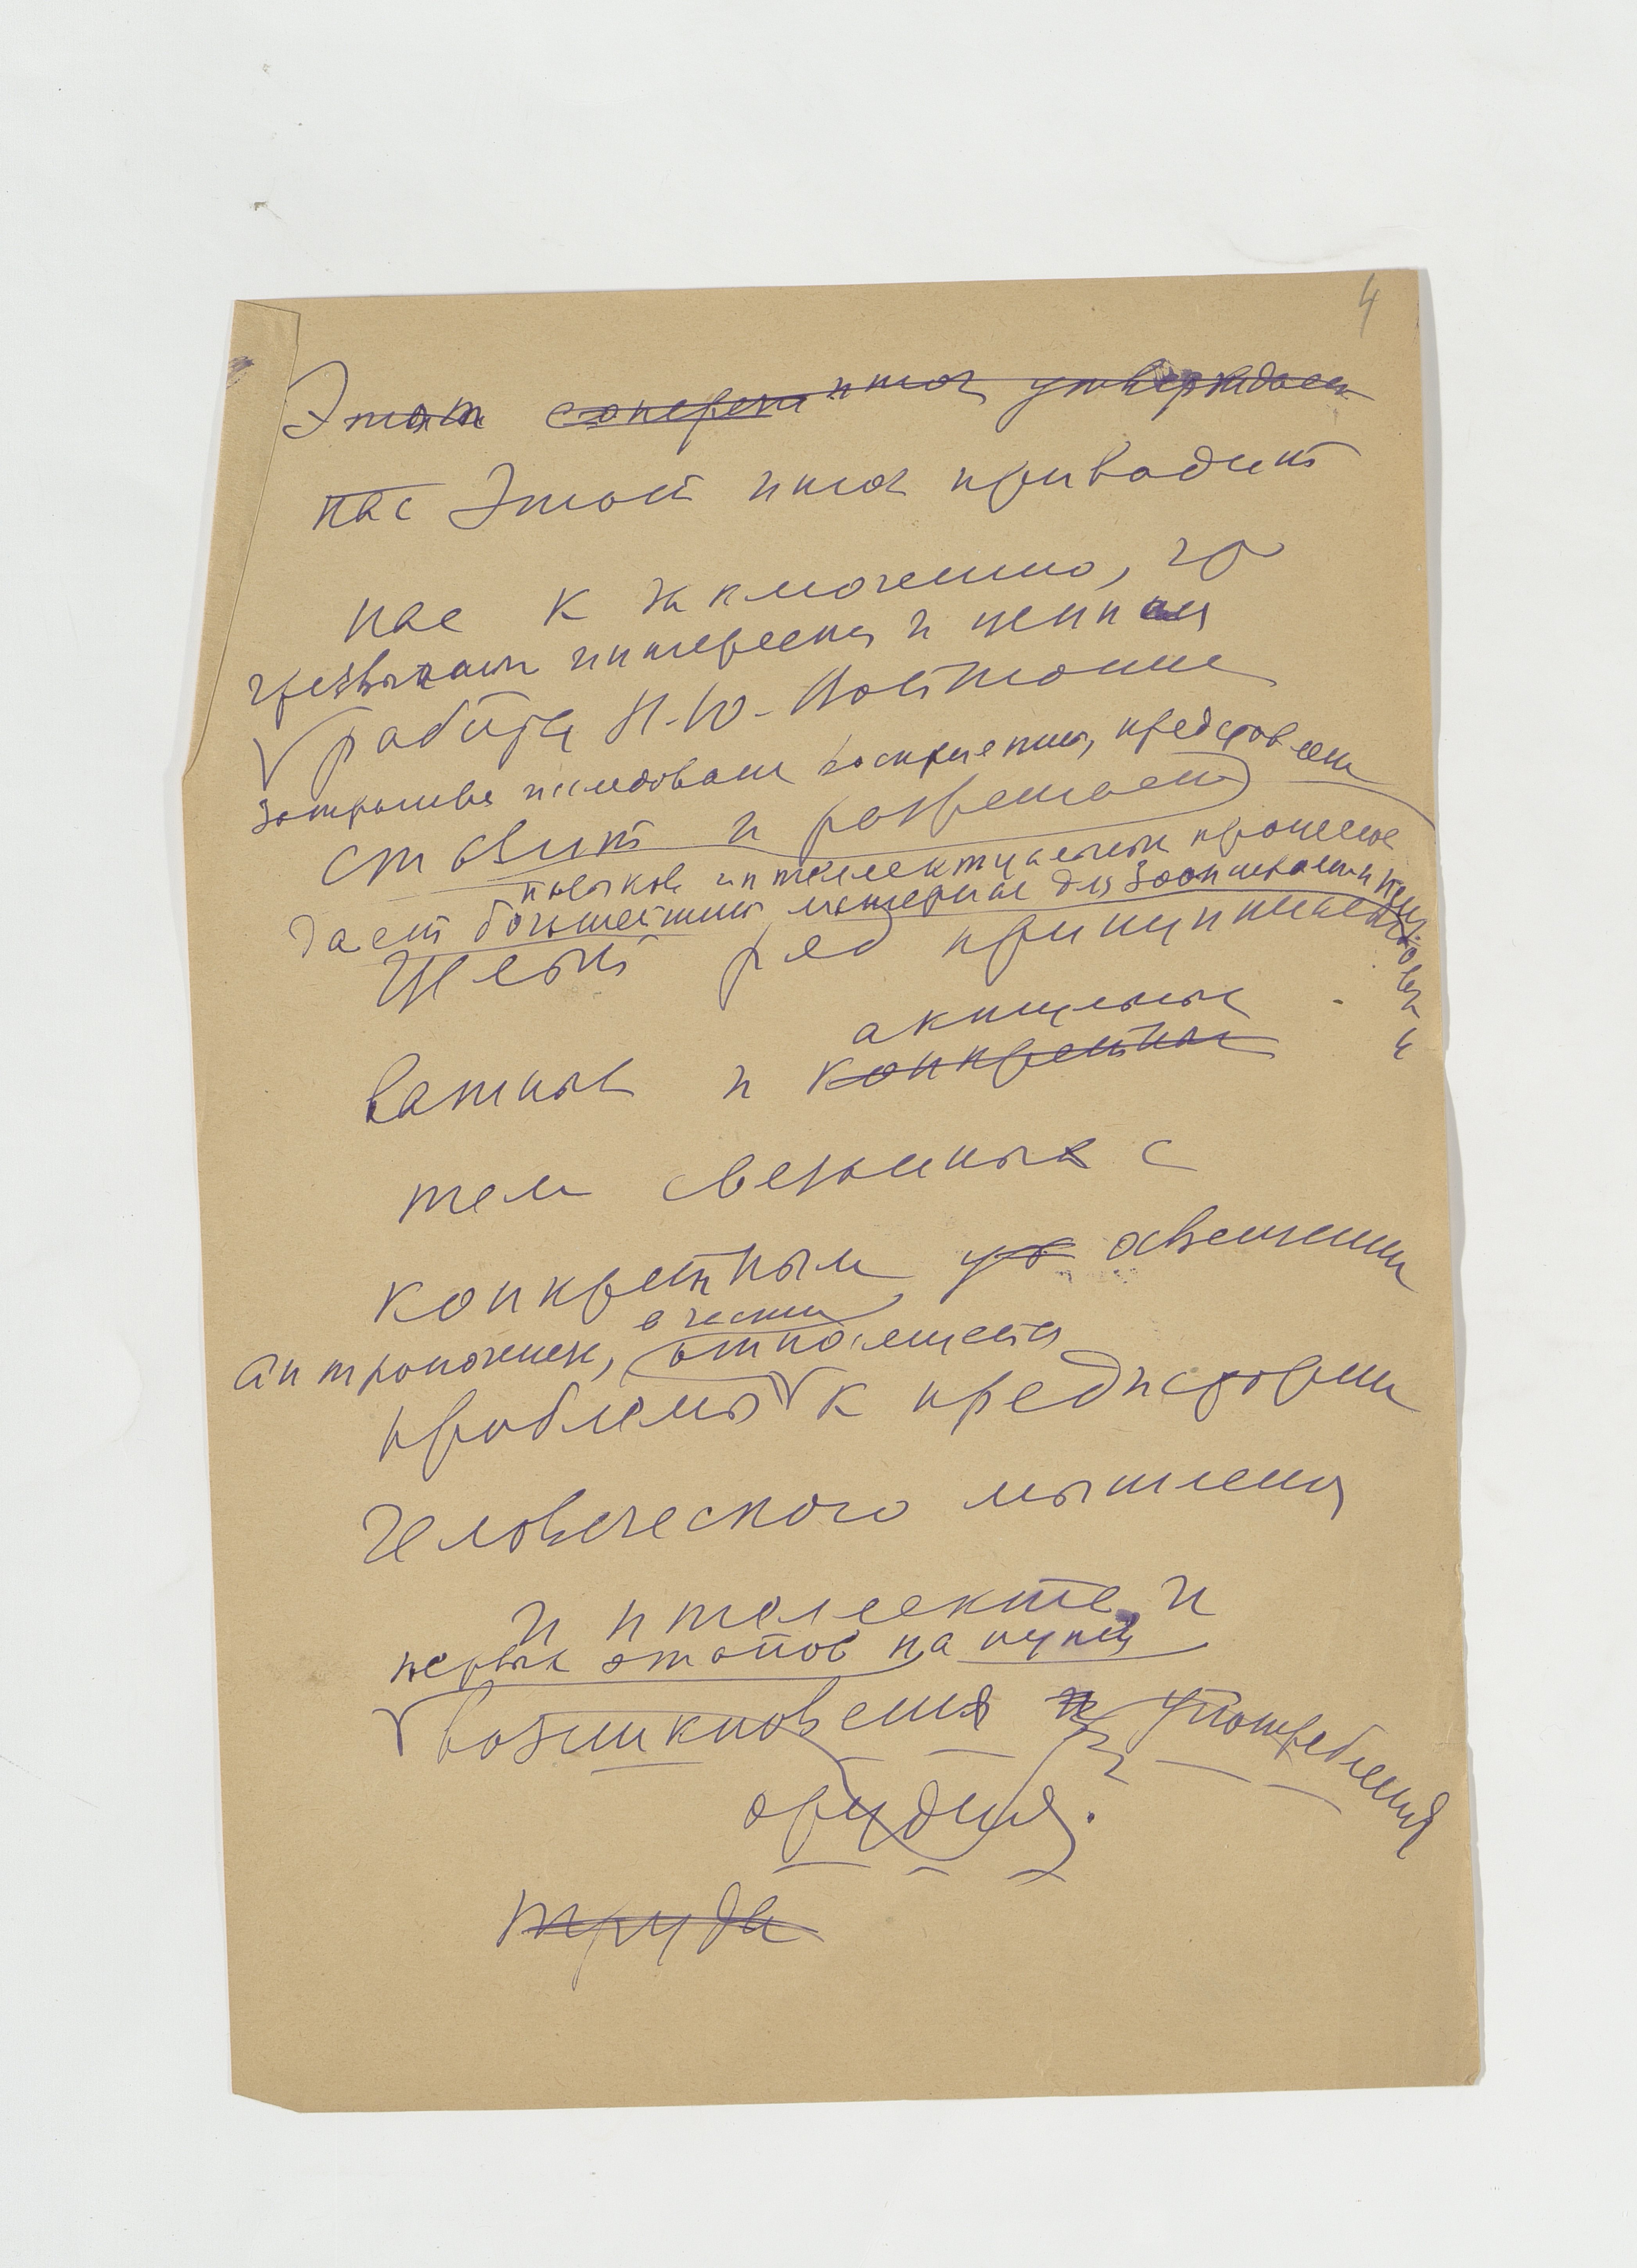 4
Этот итог утверждает
нас Этот итог приводит
нас к заключению, что
чрезвычайн интересная и ценная
работа Н.Ю. Войтонис
затрагивая исследован восприятия, представлен
ставит и разрешает
навыков интеллектуальных процессов
дает большейший материал для зоопсихологии
целый ряд принципиально
актуальных
важных и конкретных
тем связанных с
конкретным освещении
антропогенеза, относящегося
проблемы к предистории
человеческого мышления
и интеллекта и
первых этапов на пути
возникновения и употребления
орудия.
труда